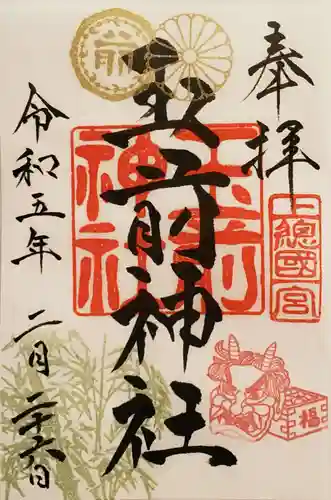 奉拝
上總國一宮
玉前神社
玉前神社
令和五年
二月二十六日
前
福